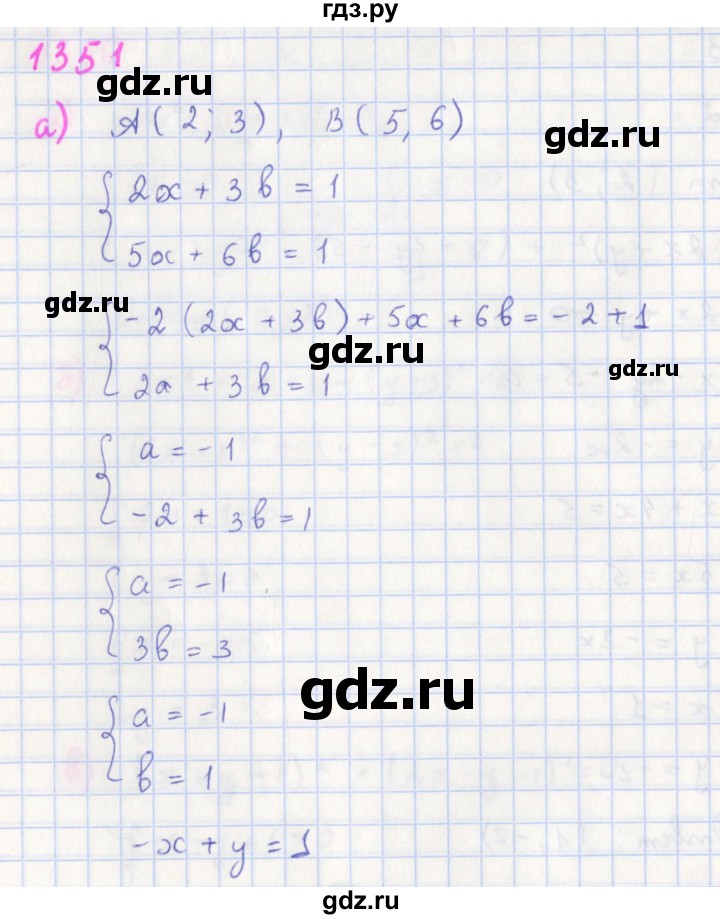 гдз.ру
1351
gdz.ru
а) A(2; 3), B(5, 6)
gdz.ru
2a + 3b = 1
5a + 6b = 1
gdz.ru
-2(2a + 3b) + 5a + 6b = -2 + 1
gdz.ru
gdz.ru
2a + 3b = 1
a = -1
-2 + 3b = 1
a = -1
3b = 3
gdz.ru
a = -1
b = 1
-x + y = 1
gdz.ru